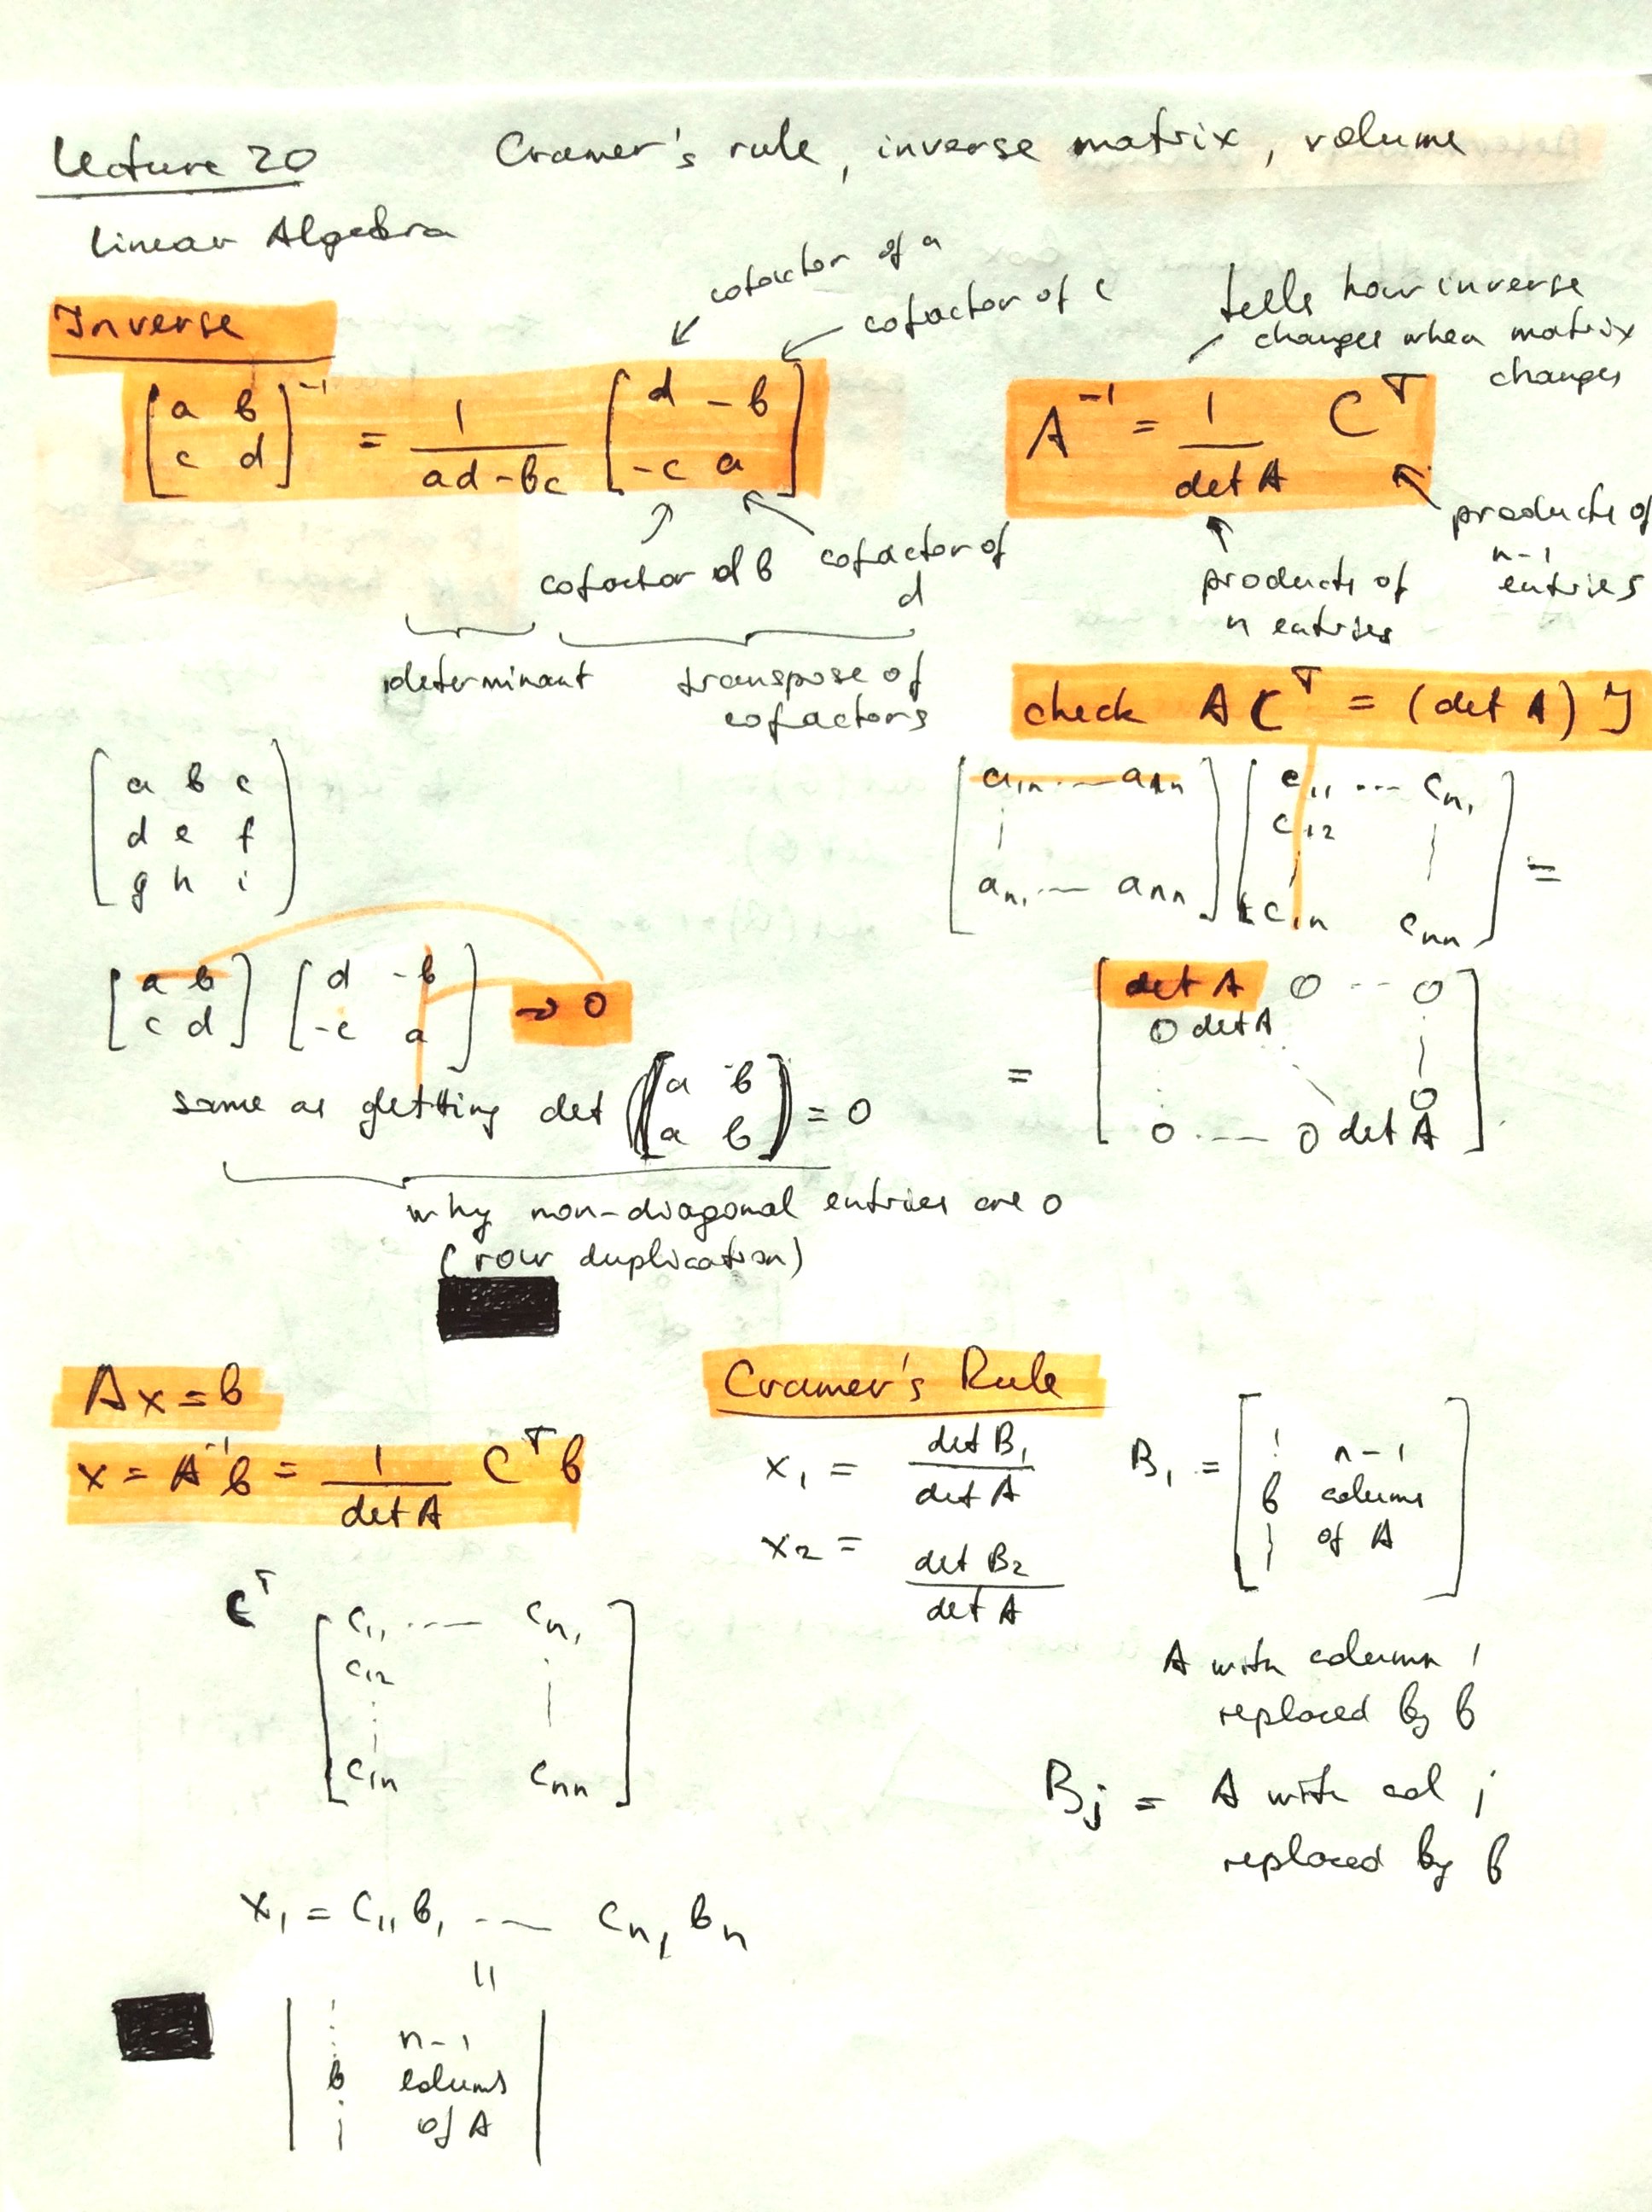 Lecture 20
Cramer's rule, inverse matrix, volume
Linear Algebra
Inverse
cofactor of a
cofactor of c
[a b; c d]⁻¹ = 1/(ad-bc) [d -b; -c a]
cofactor of b
cofactor of d
determinant
transpose of
cofactors
tells how inverse
changes when matrix
changes
A⁻¹ = 1/det A Cᵀ
products of
n entries
products of
n-1
entries
check A Cᵀ = (det A) I
[a₁ₙ ... a₁ₙ
aₙ₁ ... aₙₙ] [c₁₁ ... cₙ₁
c₁₂
c₁ₙ cₙₙ] =
= [det A 0 ... 0
0 det A
0
0 .... 0 det A]
a b c
d e f
g h i
[a b; c d] [d -b; -c a] → 0
same as getting det ([a b; a b]) = 0
why non-diagonal entries are 0
(row duplication)
Ax = b
x = A⁻¹b = 1/det A Cᵀ b
Cᵀ
[c₁₁ .... cₙ₁
c₁₂
c₁ₙ cₙₙ]
x₁ = c₁₁ b₁ .... cₙ₁ bₙ
=
| b n-1 colums of A |
Cramer's Rule
x₁ = det B₁ / det A
x₂ = det B₂ / det A
B₁ = [b n-1 colums of A]
A with column 1
replaced by b
Bj = A with col j
replaced by b